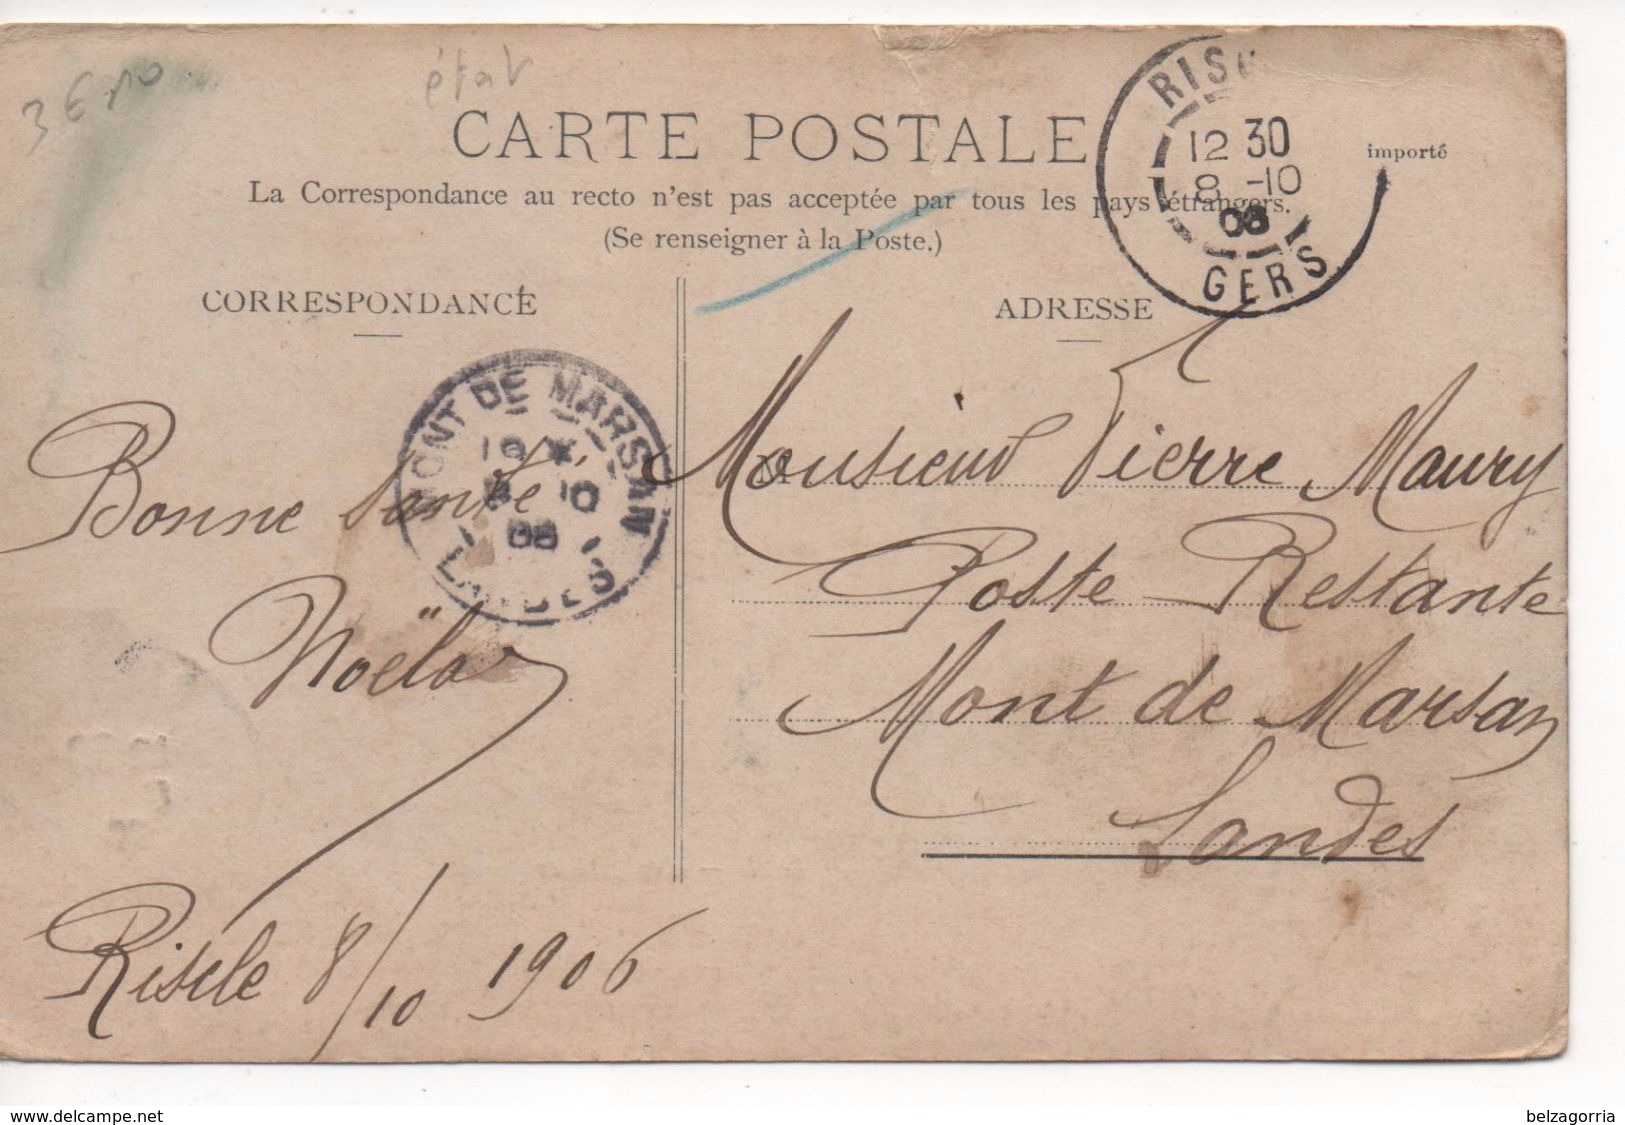 3€50
état
CARTE POSTALE
importé
La Correspondance au recto n'est pas acceptée par tous les pays étrangers.
(Se renseigner à la Poste.)
CORRESPONDANCE
ADRESSE
RIS
12 30
8 -10
GERS
MONT DE MARSAN
LANDES
Bonne Santé
Noëla
Riscle 8/10 1906
Monsieur Pierre Maury
Poste Restante
Mont de Marsan
Landes
www.delcampe.net
belzagorria